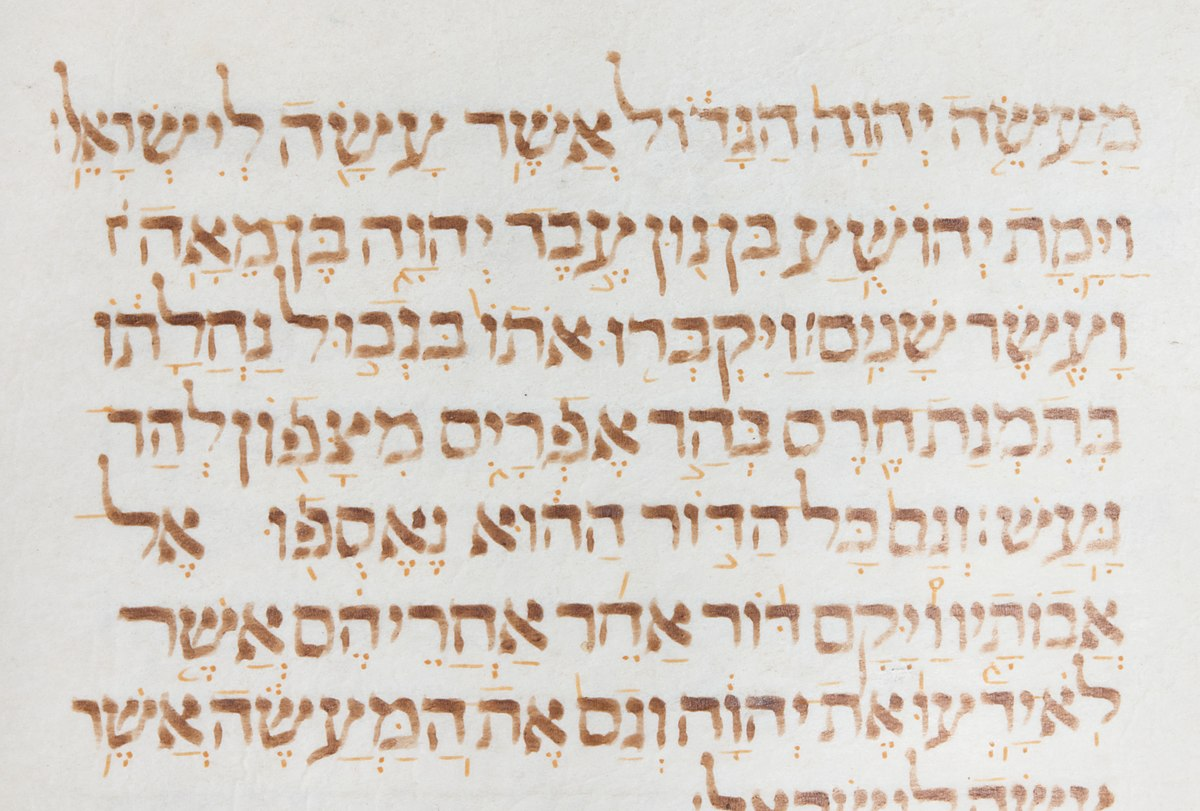 מַעֲשֵׂה יְהוָה הַגָּדוֹל אֲשֶׁר עָשָׂה לְיִשְׂרָאֵל׃
וַיָּמָת יְהוֹשֻׁעַ בִּן נוּן עֶבֶד יְהוָה בֶּן מֵאָה
וָעֶשֶׂר שָׁנִים׃ וַיִּקְבְּרוּ אֹתוֹ בִּגְבוּל נַחֲלָתוֹ
בְּתִמְנַת חֶרֶס בְּהַר אֶפְרָיִם מִצָּפוֹן לְהַר
גָּעַשׁ׃ וְגַם כָּל הַדּוֹר הַהוּא נֶאֶסְפוּ אֶל
אֲבוֹתָיו וַיָּקָם דּוֹר אַחֵר אַחֲרֵיהֶם אֲשֶׁר
לֹא יָדְעוּ אֶת יְהוָה וְגַם אֶת הַמַּעֲשֶׂה אֲשֶׁר
עָשָׂה לְיִשְׂרָאֵל׃